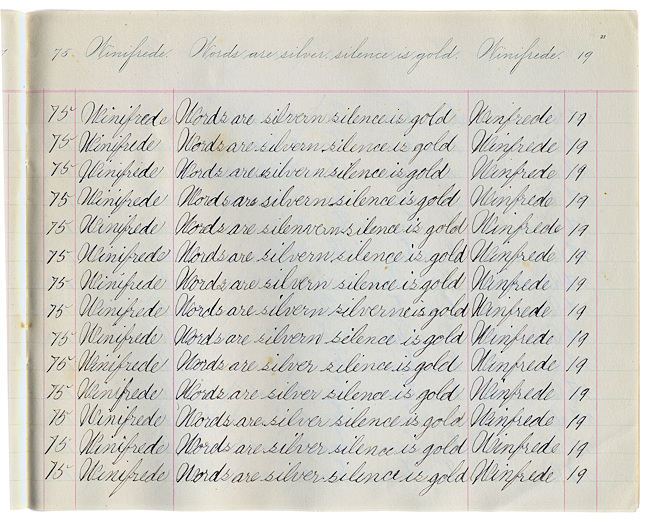 75. Winifrede. Words are silver, silence is gold. Winifrede. 19"
75 Winifrede Words are silvern silence is gold Winfrede 19
75 Winifrede Words are silvern silence is gold Winfrede 19
75 Winifrede Words are silvern silence is gold Winfrede 19
75 Winifrede Words are silvern silence is gold Winfrede 19
75 Winifrede Words are silenvern silence is gold Winfrede 19
75 Winifrede Words are silvern silence is gold Winfrede 19
75 Winifrede Words are silvern silence is gold Winfrede 19
75 Winifrede Words are silvern silverne is gold Winfrede 19
75 Winifrede Words are silvern silence is gold Winfrede 19
75 Winifrede Words are silver silence is gold Winfrede 19
75 Winifrede Words are silver silence is gold Winfrede 19
75 Winifrede Words are silver silence is gold Winfrede 19
75 Winifrede Words are silver silence is gold Winfrede 19
75 Winifrede Words are silver silence is gold Winfrede 19